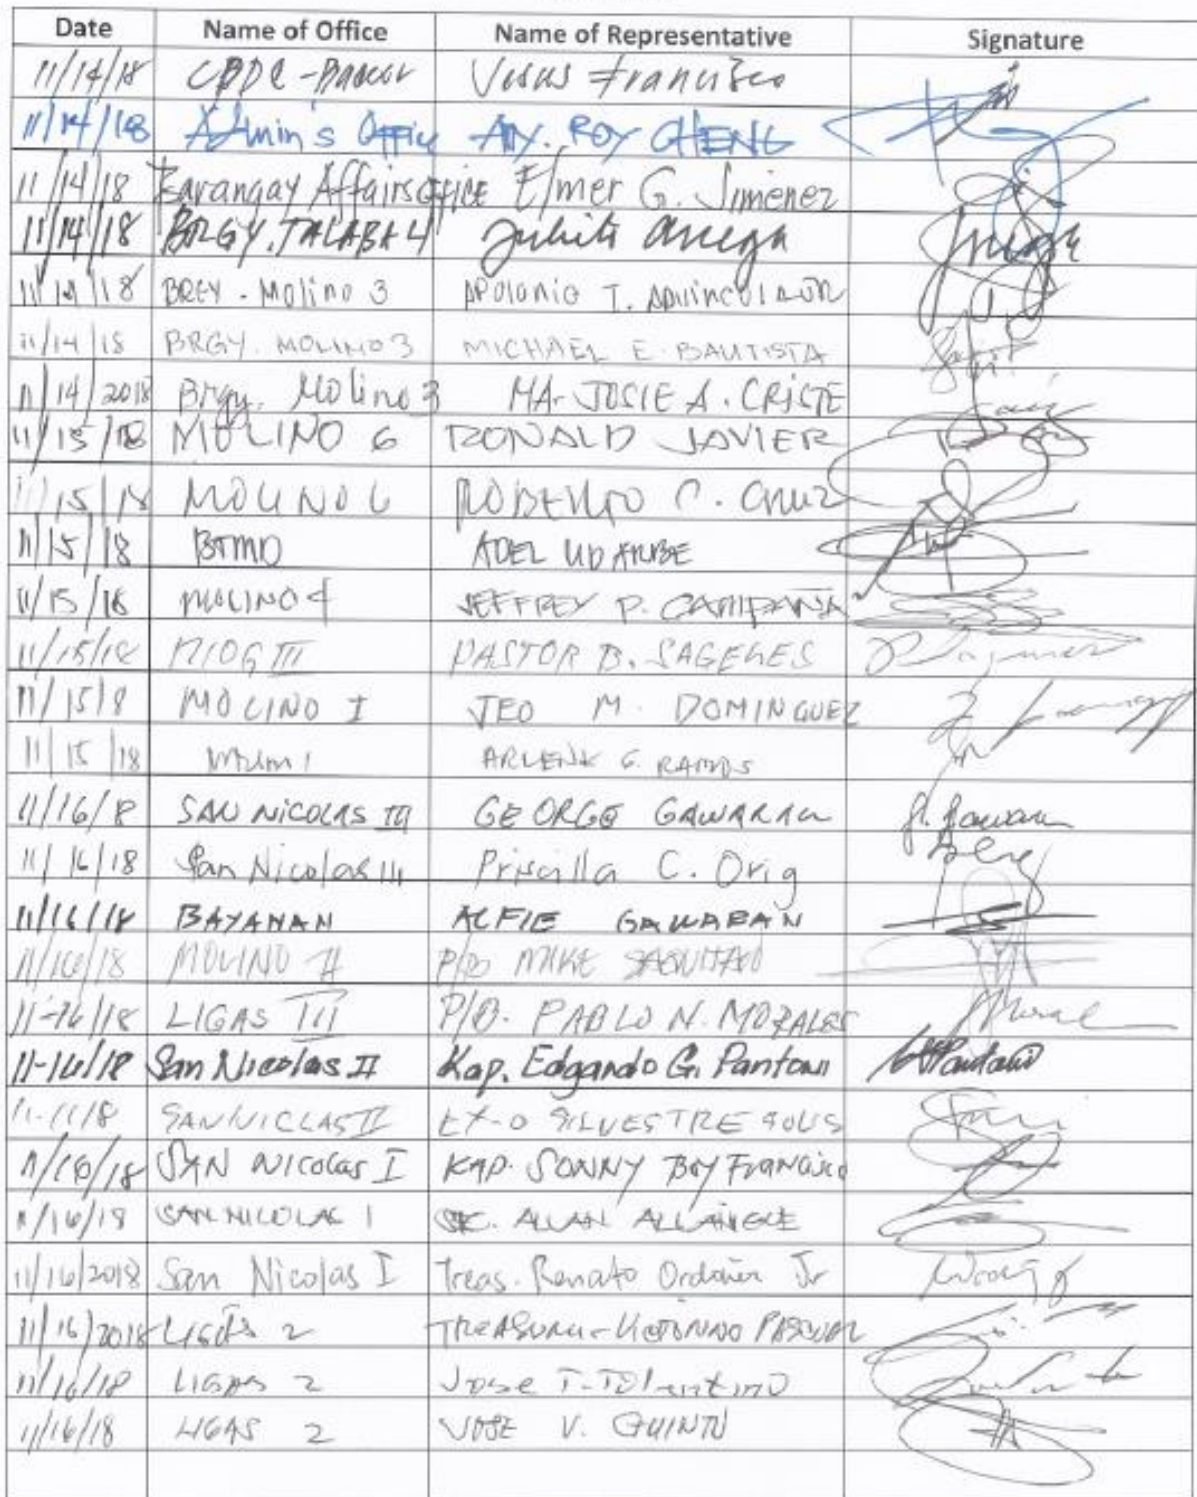 Date Name of Office Name of Representative Signature
11/14/18 CBDC - Bacoor Jesus Francisco
11/14/18 Admin's Office Aty. ROY CHENG
11/14/18 Barangay Affairs Office Elmer G. Jimenez
11/14/18 BRGY. TALABA 4
11/14/18 BRGY - Molino 3 APOLONIO I. ADUINCULA JR
11/14/18 BRGY. MOLINO 3 MICHAEL E. BAUTISTA
11/14/2018 Brgy. Molino 3 MA. JOSIE A. CRISTE
11/15/18 MOLINO 6 RONALD JAVIER
11/15/18 MOLINO 6 ROBERTO C. CRUZ
11/15/18 BTMD ADEL UDARBE
11/15/18 MOLINO 4 JEFFREY P. CAMPAÑA
11/15/18 NIOG III PASTOR B. SAGENES
11/15/8 MOLINO I JEO M. DOMINGUEZ
11/15/18 ARLENE G. RAMOS
11/16/8 SAN NICOLAS III GEORGE GAWARAN
11/16/18 San Nicolas III Priscilla C. Orig
11/16/18 BAYANAN ALFIE GAWARAN
11/16/18 MOLINO II P/B MIKE
11-16/18 LIGAS III P/B. PABLO N. MORALES
11-16/18 San Nicolas II Kap. Edgardo G. Pantoni
SAN NICLAS II EX-O SILVESTRE SOLIS
11/16/18 SAN NICOLAS I KAP. SONNY BOY Francisco
11/16/18 SAN NICOLAS I SEC. ALLAN
11/16/2018 San Nicolas I Treas. Renato Ordoñez Jr
11/16/2018 LIGAS 2 TREASURER - PASCUAL
11/16/18 LIGAS 2 Jose T. Tolentino
11/16/18 LIGAS 2 JOSE V. QUINTO